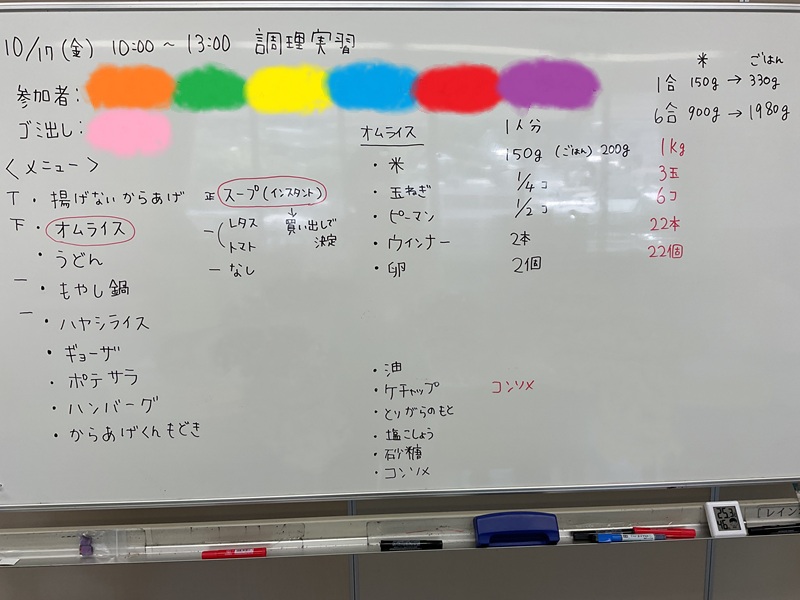 10/17(金) 10:00～13:00 調理実習
参加者:
ゴミ出し:
〈メニュー〉
T ・揚げないからあげ
下 ・オムライス
・うどん
一 ・もやし鍋
一 ・ハヤシライス
・ギョーザ
・ポテサラ
・ハンバーグ
・からあげくんもどき
正 スープ(インスタント)
↓
買い出しで
決定
一 レタス
トマト
一 なし
オムライス 1人分
・米 150g (ごはん) 200g 1kg
・玉ねぎ 1/4コ 3玉
・ピーマン 1/2コ 6コ
・ウインナー 2本 22本
・卵 2個 22個
・油
・ケチャップ コンソメ
・とりがらのもと
・塩こしょう
・砂糖
・コンソメ
米 ごはん
1合 150g → 330g
6合 900g → 1980g